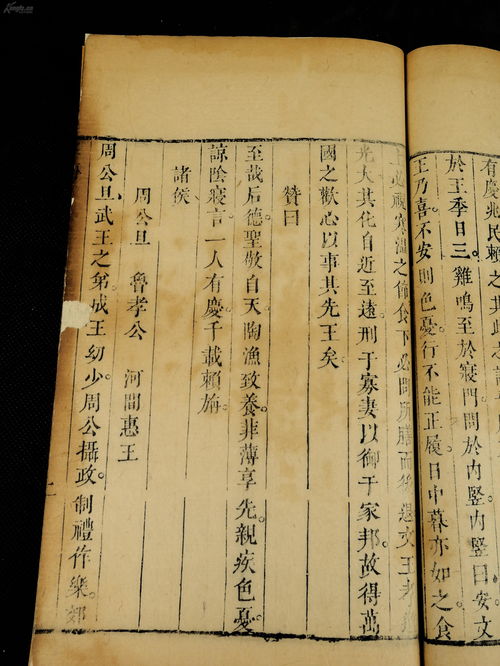 Kongfz.cn
有慶兆民賴之其此
於王季日三雞鳴至於寢門問於內豎內豎曰安文
王乃喜不安則色憂行不能正履日中暮亦如之食
上必視寒溫之節食下必問所膳而後退文王孝
光大其化自近至遠刑于寡妻以御于家邦故得萬
國之歡心以事其先王矣
贊曰
至哉后德聖敬自天陶漁致養菲薄享先親疾色憂
諒陰寢言一人有慶千載賴旃
諸侯
周公旦 魯孝公 河間惠王
周公旦武王之弟成王幼少周公攝政制禮作樂郊
二